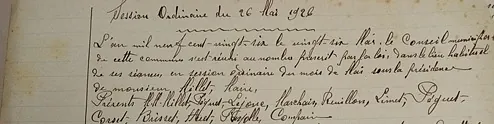 Session Ordinaire du 26 Mai 1926
L'an mil neuf cent-vingt-six le vingt-six Mai, le Conseil municipal
de cette commune s'est réuni au nombre prescrit par la loi, dans le lieu habituel
de ses séances, en session ordinaire du mois de Mai sous la présidence
de monsieur Millet, Maire,
Présents M.M. Millet, Lejeune, Marchais, Revillon, Limet,
Brisset,